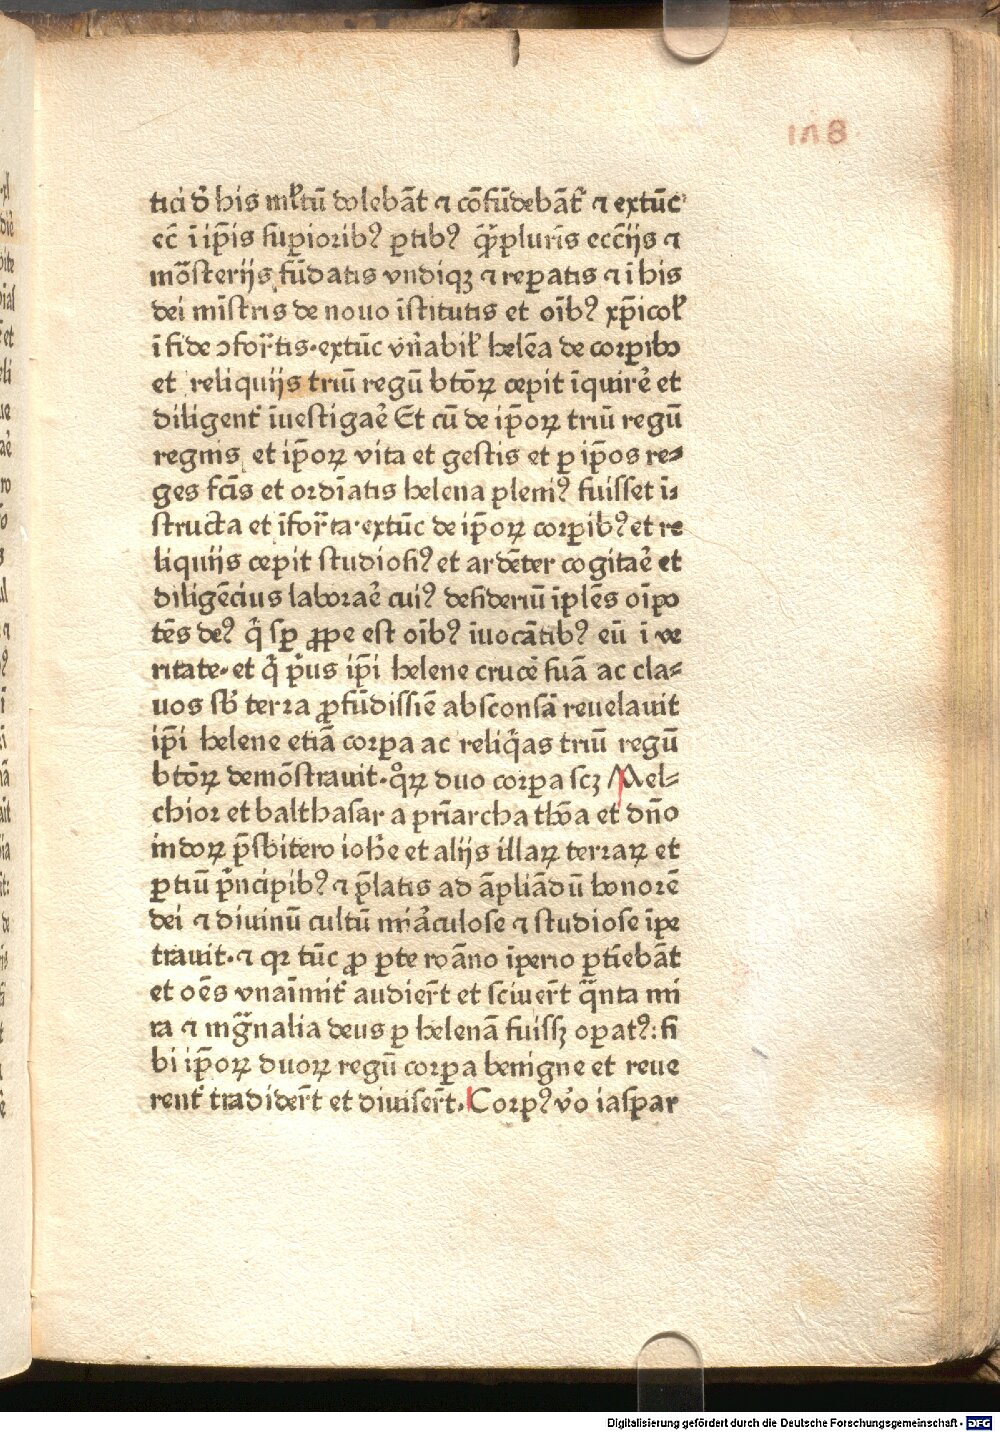 148
tici đ his ml̓tū dolebāt ⁊ cōfūdebāt̓ ⁊ extūc
ec̄ ī ip̄is supioribꝰ ꝑtibꝰ qᷓꝑplurīs ecc̄ijs ⁊
mōsterijs fūdatis vndiqꝫ ⁊ reꝑatis ⁊ ī his
dei mīstris de nouo īstitutis et oībꝰ xp̄icol̓
ī fide ꝯfor̄tis·extūc vn̄abil̓ helēa de corꝑibꝰ
et reliquijs triū regū btōꝝ cepit īquirē et
diligent̓ īuestigaē Et cū de ip̄oꝝ triū regū
regnis et ip̄oꝝ vita et gestis et ꝑ ip̄os re⸗
ges fc̄is et ordīatis helena pleniꝰ fuisset ī⸗
structa et īfor̄ta·extūc de ip̄oꝝ corꝑibꝰ et re
liquijs cepit studiosiꝰ et ardēter cogitaē et
diligēcius laboraē cuiꝰ desideriū īplēs oīpo
tēs deꝰ q̄ sꝑ ꝓpe est oībꝰ īuocātibꝰ eū ī ve
ritate·et q̄ p̄us ip̄i helene crucē suā ac cla⸗
uos sb̓ terra ꝓfūdissīe absconsā reuelauit
ip̄i helene etiā corꝑa ac reliq̄as triū regū
btōꝝ demōstrauit·qͦꝝ duo corꝑa scꝫ Mel⸗
chior et balthasar a pr̄iarcha thōa et dn̄o
indoꝝ p̄sbitero ioh̄e et alijs illaꝝ terraꝝ et
ꝑtiū p̄ncipibꝰ ⁊ p̄latis ad āpliādū honorē
dei ⁊ diuinū cultū mi̓āculose ⁊ studiose īpe
trauit·⁊ qꝛ tūc ꝓ ꝑte roāno īperio ꝑtiebāt
et oēs vnaīmit̓ audier̄t et sciuer̄t qᷓnta mi
ra ⁊ mgᷓnalia deus ꝑ helenā fuissꝫ oꝑatꝰ: si
bi ip̄oꝝ duoꝝ regū corꝑa benigne et reue
rent̓ tradider̄t et diuiser̄t. Corpꝰ v̓o iaspar
Digitalisierung gefördert durch die Deutsche Forschungsgemeinschaft - DFG